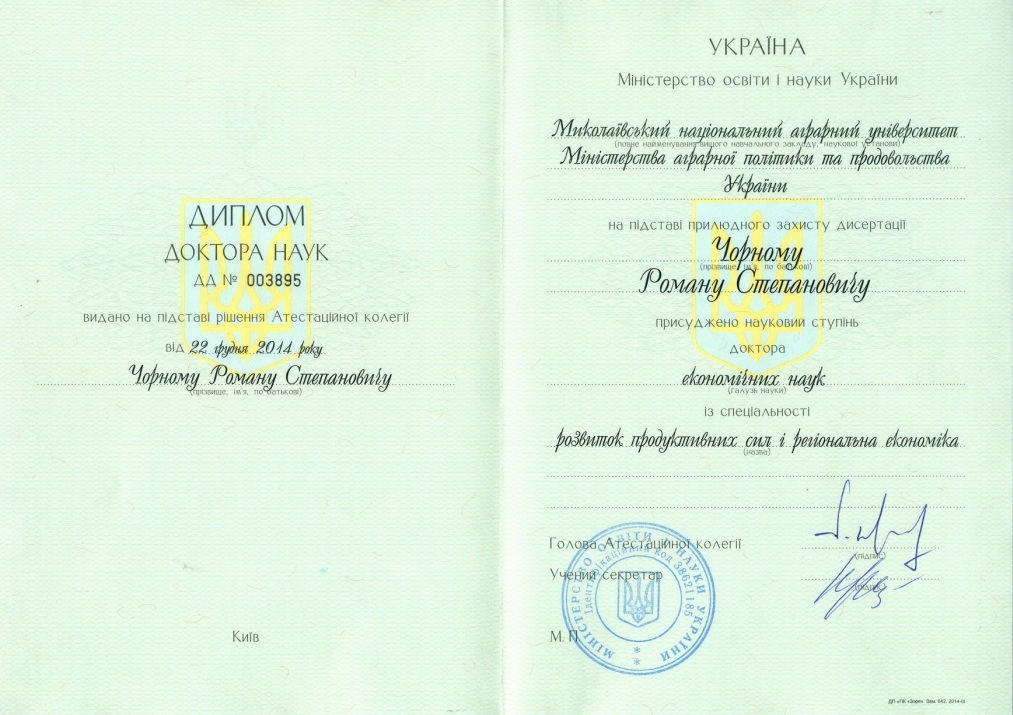 ДИПЛОМ
ДОКТОРА НАУК
ДД № 003895
видано на підставі рішення Атестаційної колегії
від 22 грудня 2014 року
Чорному Роману Степановичу
(прізвище, ім'я, по батькові)
Київ
УКРАЇНА
Міністерство освіти і науки України
Миколаївський національний аграрний університет
(повне найменування вищого навчального закладу, наукової установи)
Міністерства аграрної політики та продовольства
України
на підставі прилюдного захисту дисертації
Чорному
(прізвище, ім'я, по батькові)
Роману Степановичу
присуджено науковий ступінь
доктора
економічних наук
(галузь науки)
із спеціальності
розвиток продуктивних сил і регіональна економіка
(назва)
Голова Атестаційної колегії
(підпис)
Учений секретар
(підпис)
М. П.
МІНІСТЕРСТВО ОСВІТИ І НАУКИ УКРАЇНИ
Ідентифікаційний код 38621185
ДП «ПК «Зоря». Зам. 842. 2014-ІІ